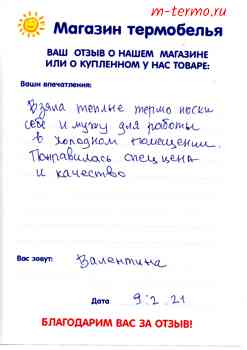 m-termo.ru
Магазин термобелья
ВАШ ОТЗЫВ О НАШЕМ МАГАЗИНЕ
ИЛИ О КУПЛЕННОМ У НАС ТОВАРЕ:
Ваши впечатления:
Взяла теплые термо носки
себе и мужу для работы
в холодном помещении.
Понравилась спец цена
и качество
Вас зовут: Валентина
Дата 9.2.21
БЛАГОДАРИМ ВАС ЗА ОТЗЫВ!